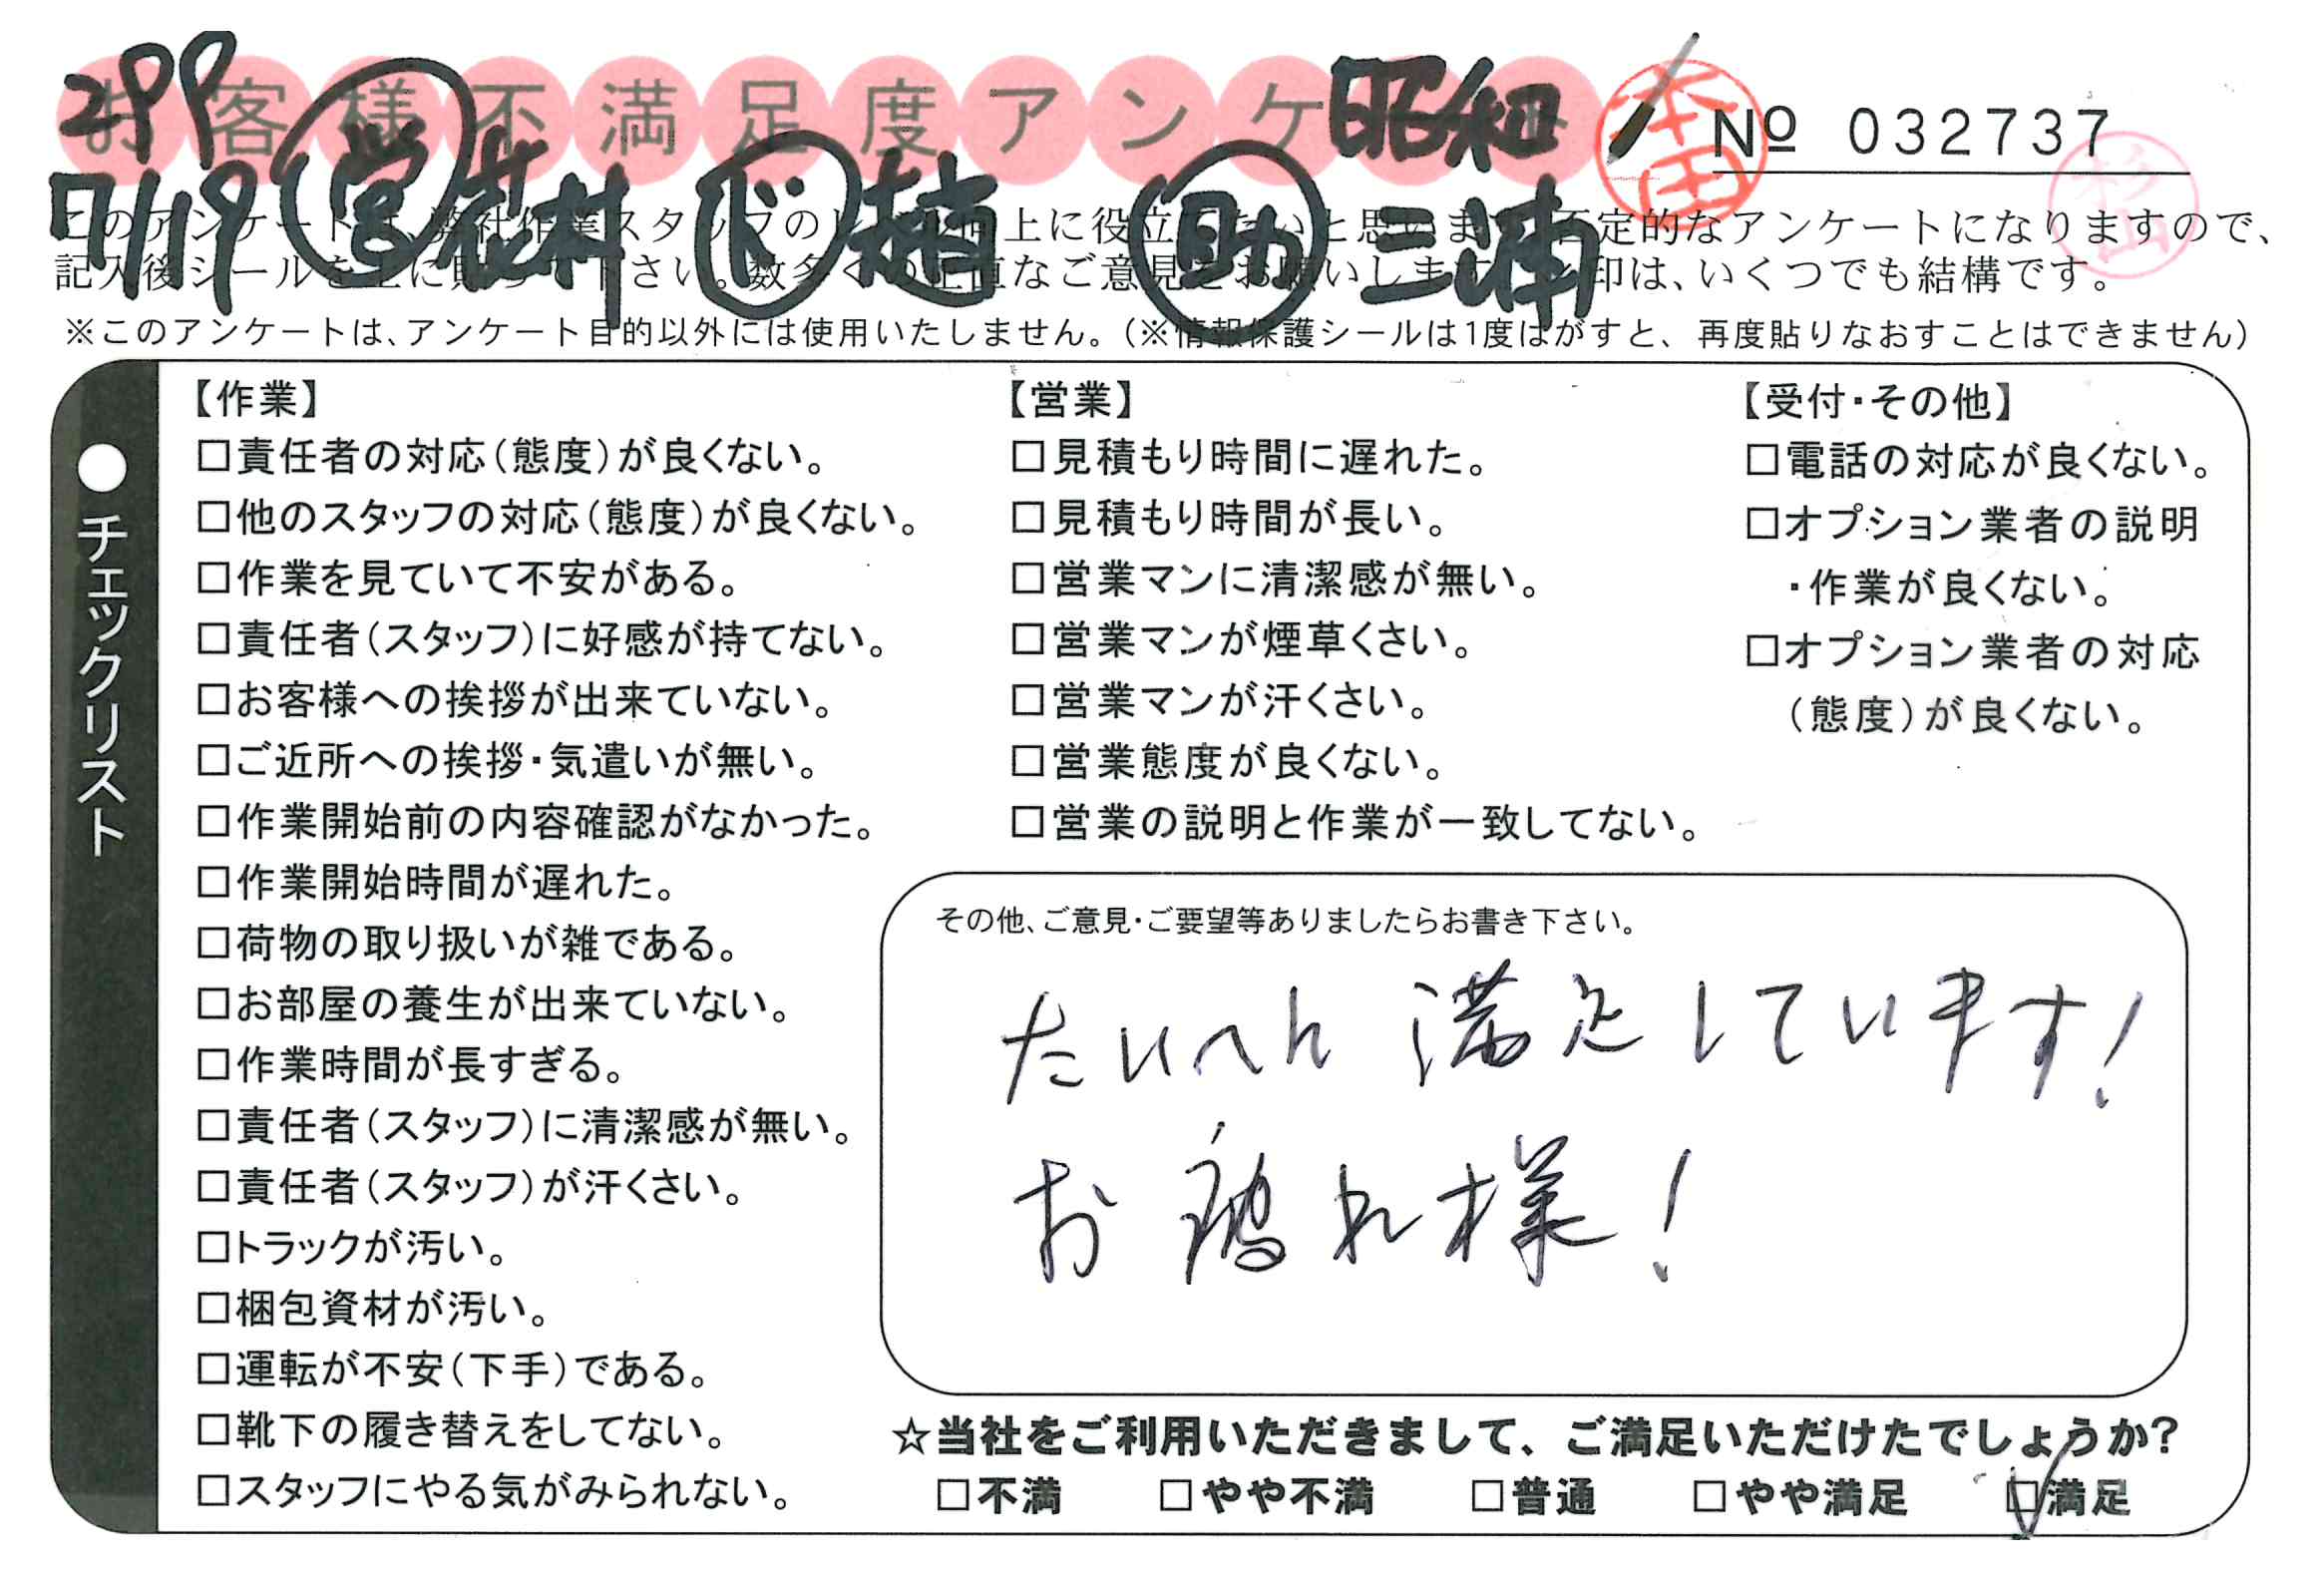 お客様不満足度アンケート
299 昭和 本田
No 032737
7/19 営 花村 ド 趙 助 三浦 杉山
このアンケートは、弊社作業スタッフのレベル向上に役立てたいと思います。否定的なアンケートになりますので、
記入後シールを上に貼って下さい。数多くの正直なご意見をお願いします。レ印は、いくつでも結構です。
※このアンケートは、アンケート目的以外には使用いたしません。(※情報保護シールは1度はがすと、再度貼りなおすことはできません)
●チェックリスト
【作業】
□責任者の対応(態度)が良くない。
□他のスタッフの対応(態度)が良くない。
□作業を見ていて不安がある。
□責任者(スタッフ)に好感が持てない。
□お客様への挨拶が出来ていない。
□ご近所への挨拶・気遣いが無い。
□作業開始前の内容確認がなかった。
□作業開始時間が遅れた。
□荷物の取り扱いが雑である。
□お部屋の養生が出来ていない。
□作業時間が長すぎる。
□責任者(スタッフ)に清潔感が無い。
□責任者(スタッフ)が汗くさい。
□トラックが汚い。
□梱包資材が汚い。
□運転が不安(下手)である。
□靴下の履き替えをしてない。
□スタッフにやる気がみられない。
【営業】
□見積もり時間に遅れた。
□見積もり時間が長い。
□営業マンに清潔感が無い。
□営業マンが煙草くさい。
□営業マンが汗くさい。
□営業態度が良くない。
□営業の説明と作業が一致してない。
【受付・その他】
□電話の対応が良くない。
□オプション業者の説明
・作業が良くない。
□オプション業者の対応
(態度)が良くない。
その他、ご意見・ご要望等ありましたらお書き下さい。
たいへん 満足しています!
お疲れ様!
☆当社をご利用いただきまして、ご満足いただけたでしょうか?
□不満 □やや不満 □普通 □やや満足 ☑満足